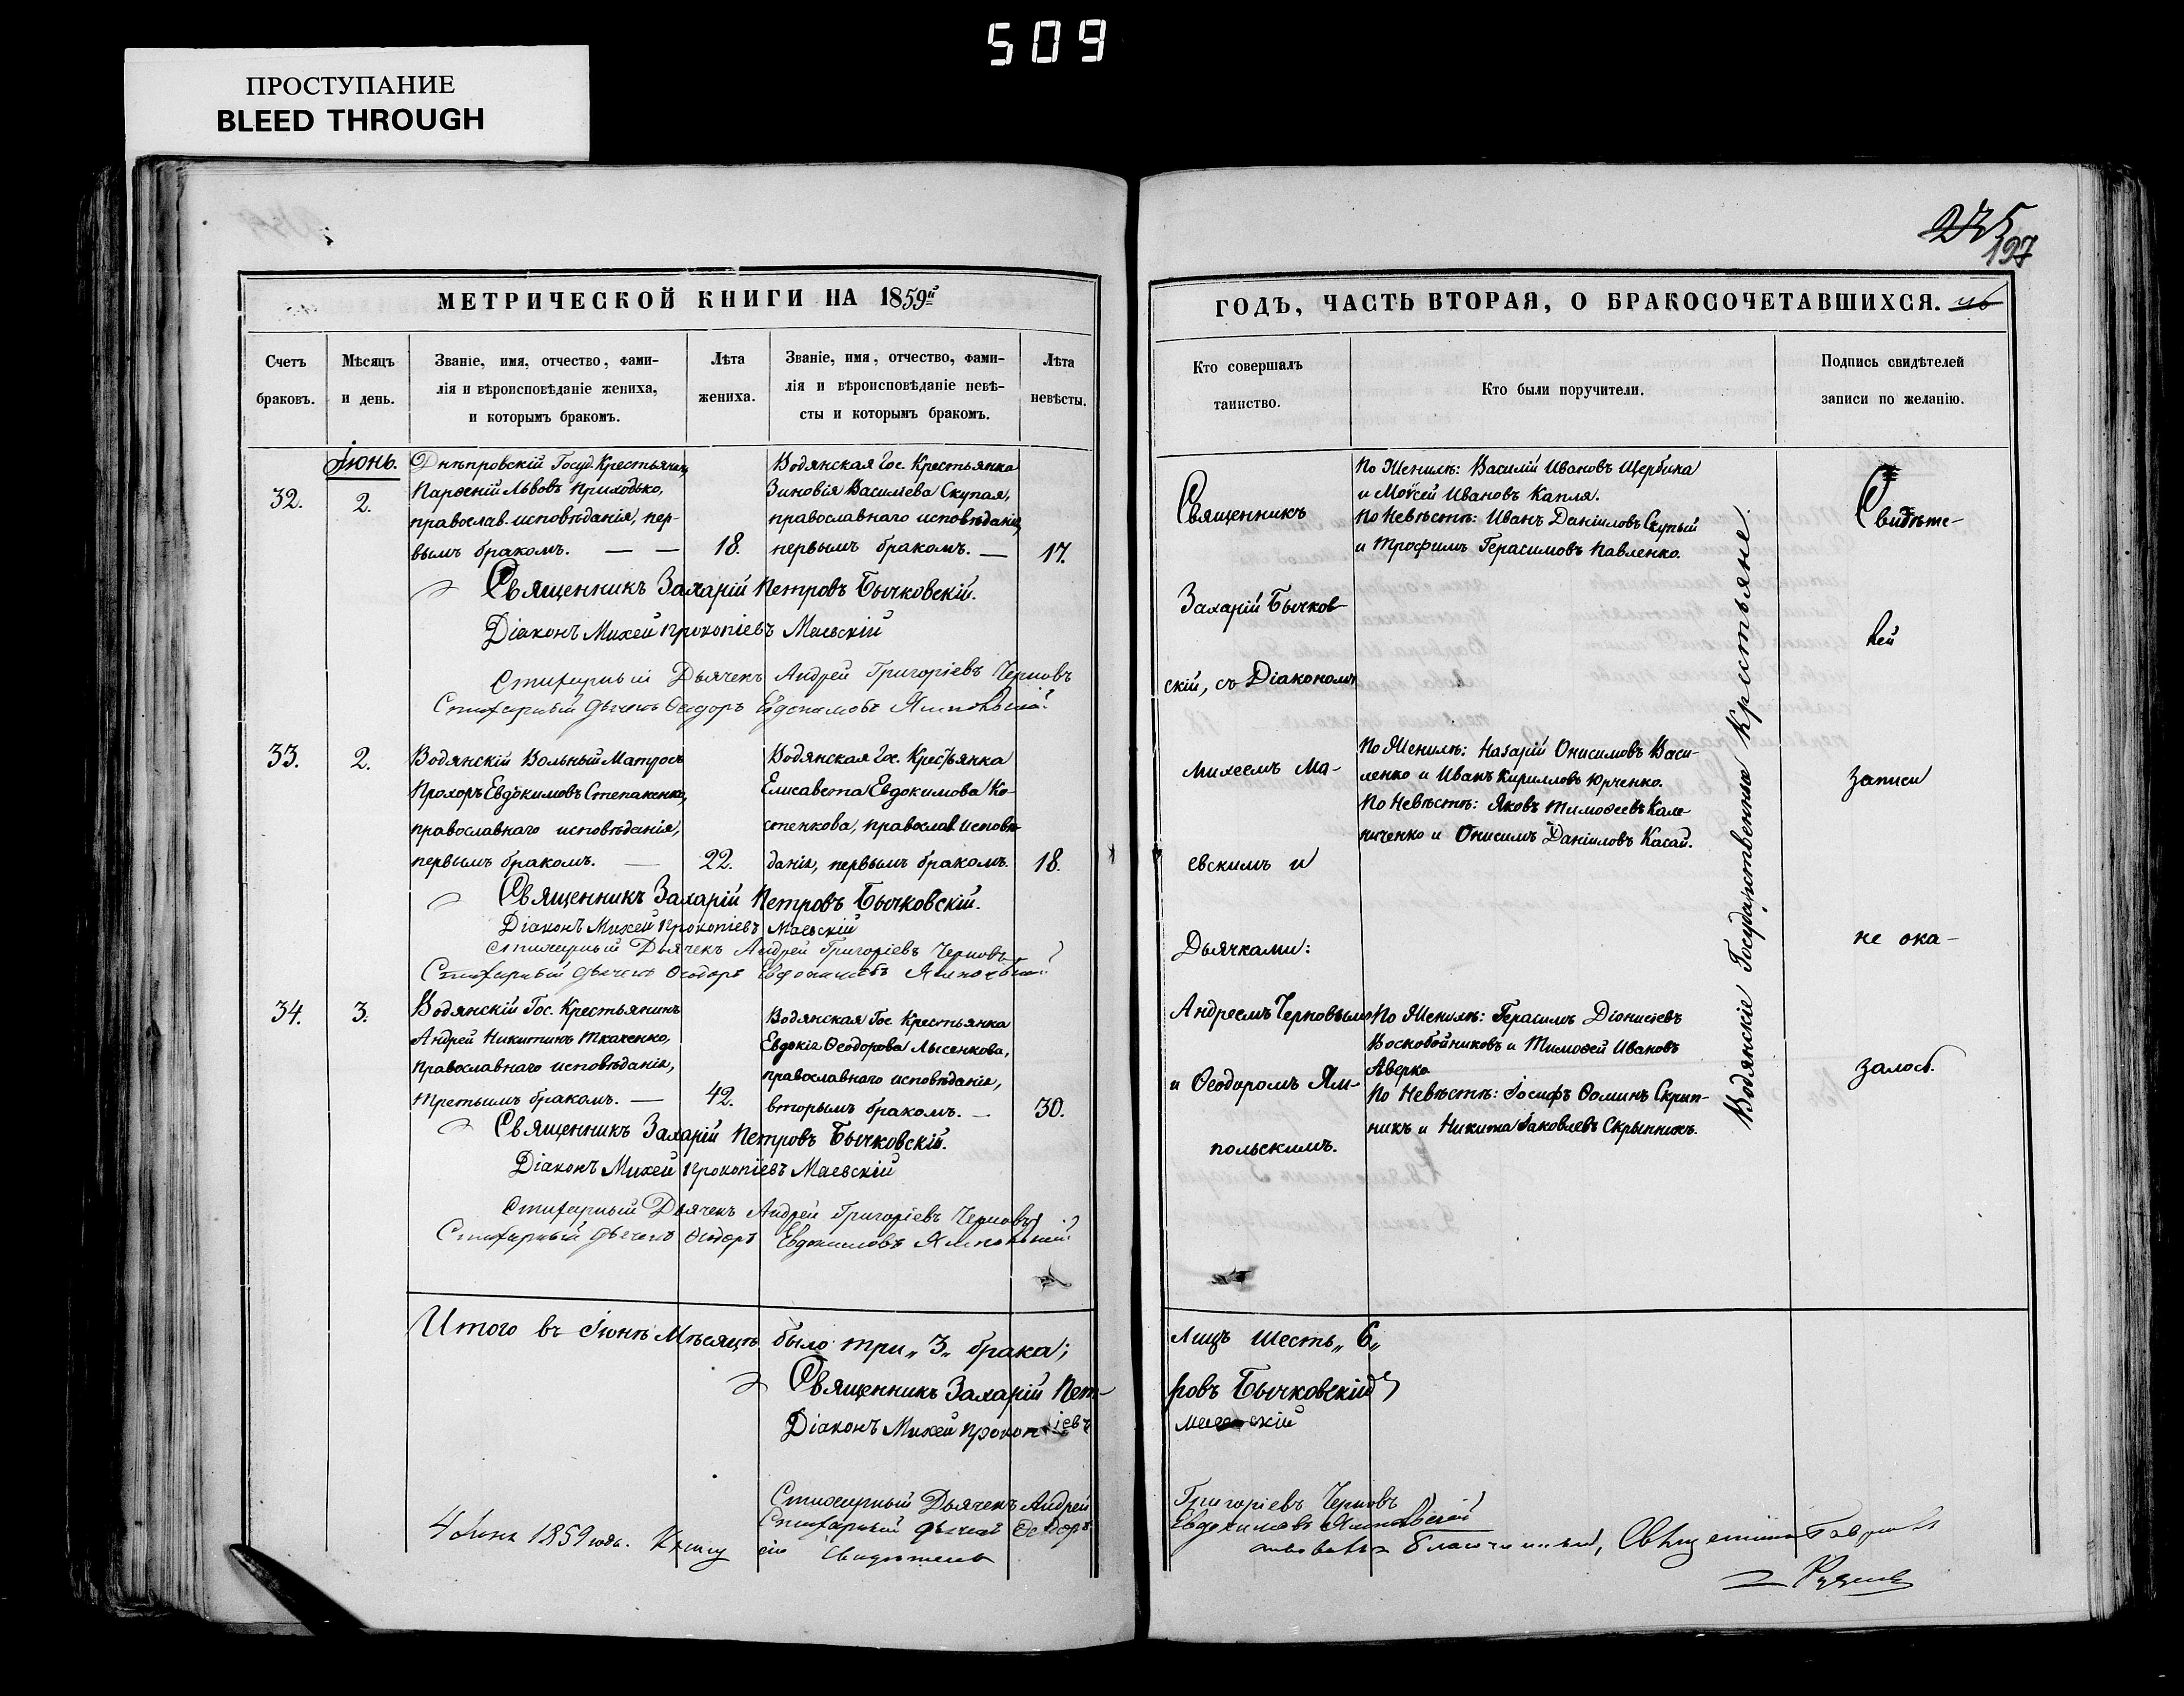 509
ПРОСТУПАНИЕ
BLEED THROUGH
МЕТРИЧЕСКОЙ КНИГИ НА 1859й
Счетъ браковъ.
Мѣсяцъ и день.
Званіе, имя, отчество, фами-
лія и вѣроисповѣданіе жениха,
и которымъ бракомъ.
Лѣта жениха.
Званіе, имя, отчество, фами-
лія и вѣроисповѣданіе невѣ-
сты и которымъ бракомъ.
Лѣта невѣсты.
Іюнь.
32.
2.
Днѣпровскій Госуд. Крестьянинъ
Парѳеній Львовъ Приходько,
православ. исповѣданія, пер-
вымъ бракомъ. — —
18.
Водянская Гос. Крестьянка
Зиновія Васильева Скупая,
православнаго исповѣданія,
первымъ бракомъ. —
17.
Священникъ Захарій Петровъ Бычковскій.
Діаконъ Михей Прокопіевъ Маевскій
Стихарный Дьячекъ Андрей Григоріевъ Черновъ
Стихарный Дьячекъ Ѳеодоръ Евдокимовъ Ямпольскій
33.
2.
Водянскій Вольный Матросъ
Прохоръ Евдокимовъ Степаненко,
православнаго исповѣданія,
первымъ бракомъ. —
22.
Водянская Гос. Крестьянка
Елисавета Евдокимова Ко-
стенкова, православ. исповѣ-
данія, первымъ бракомъ.
18.
Священникъ Захарій Петровъ Бычковскій.
Діаконъ Михей Прокопіевъ Маевскій
Стихарный Дьячекъ Андрей Григоріевъ Черновъ
Стихарный Дьячекъ Ѳеодоръ Евдокимовъ Ямпольскій
34.
3.
Водянскій Гос. Крестьянинъ
Андрей Никитинъ Ткаченко,
православнаго исповѣданія,
третьимъ бракомъ. —
42.
Водянская Гос. Крестьянка
Евдокія Ѳеодорова Лысенкова,
православнаго исповѣданія,
вторымъ бракомъ. —
30.
Священникъ Захарій Петровъ Бычковскій.
Діаконъ Михей Прокопіевъ Маевскій
Стихарный Дьячекъ Андрей Григоріевъ Черновъ
Стихарный Дьячекъ Ѳеодоръ Евдокимовъ Ямпольскій
Итого въ Іюнѣ Мѣсяцѣ было три „3„ брака;
Священникъ Захарій Пет-
Діаконъ Михей Прокопіевъ
Стихарный Дьячекъ Андрей
Стихарный Дьячекъ Ѳеодоръ
4 Іюня 1859 года. Книгу сію свидѣтель
235
197
ГОДЪ, ЧАСТЬ ВТОРАЯ, О БРАКОСОЧЕТАВШИХСЯ.
Кто совершалъ таинство.
Кто были поручители.
Подпись свидѣтелей
записи по желанію.
Священникъ
Захарій Бычков-
скій, съ Діакономъ
Михеемъ Ма-
евскимъ и
Дьячками:
Андреемъ Черновымъ
и Ѳеодоромъ Ям-
польскимъ.
По Женихѣ: Василій Ивановъ Щербина
и Моѵсей Ивановъ Капля.
По Невѣстѣ: Иванъ Даніиловъ Скупый
и Трофимъ Герасимовъ Павленко.
По Женихѣ: Назарій Онисимовъ Васи-
ленко и Иванъ Кирилловъ Юрченко.
По Невѣстѣ: Яковъ Тимоѳеевъ Кале-
ниченко и Онисимъ Даніиловъ Касай.
По Женихѣ: Герасимъ Діонисіевъ
Воскобойниковъ и Тимоѳей Ивановъ
Аверко
По Невѣстѣ: Іосифъ Ѳоминъ Скрып-
никъ и Никита Іаковлевъ Скрыпникъ.
Водянскіе Государственные Крестьяне.
Свидѣте-
лей
записи
не ока-
залось.
Лицъ шесть „6„
ровъ Бычковскій
Маевскій
Григоріевъ Черновъ
Евдокимовъ Ямпольскій
ствовалъ Благочинный, Священникъ Гавріилъ